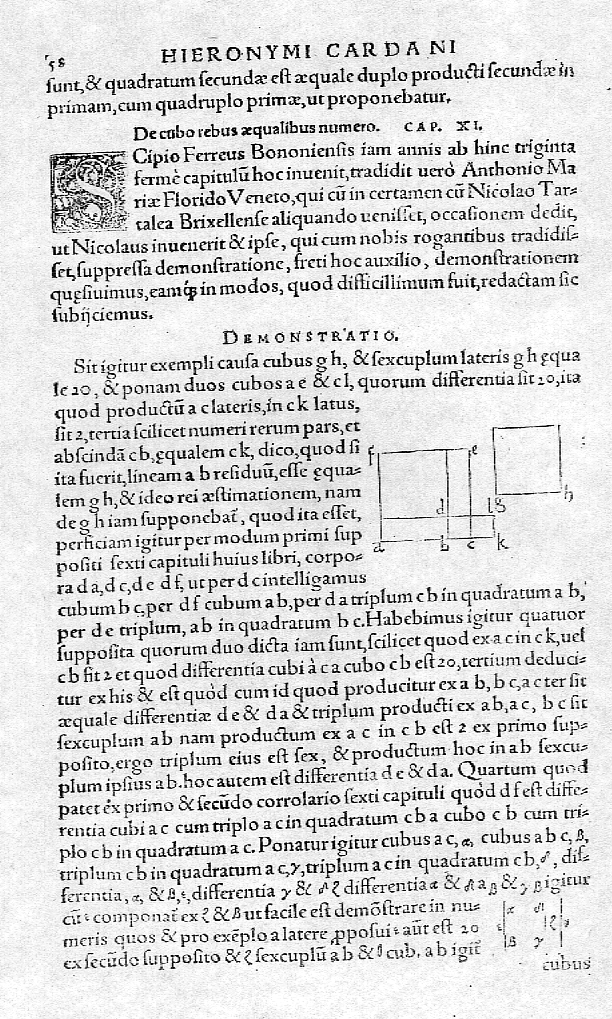 58
HIERONYMI CARDANI
sunt, & quadratum secundæ est æquale duplo producti secundæ in
primam, cum quadruplo primæ, ut proponebatur.
De cubo rebus æqualibus numero. CAP. XI.
SCipio Ferreus Bononiensis iam annis ab hinc triginta
fermè capitulũ hoc inuenit, tradidit uerò Anthonio Ma
riæ Florido Veneto, qui cũ in certamen cũ Nicolao Tar-
talea Brixellense aliquando uenisset, occasionem dedit,
ut Nicolaus inuenerit & ipse, qui cum nobis rogantibus tradidis-
set, suppressa demonstratione, freti hoc auxilio, demonstrationem
quęsiuimus, eamq́; in modos, quod difficillimum fuit, redactam sic
subijciemus.
DEMONSTRATIO.
Sit igitur exempli causa cubus g h, & sexcuplum lateris g h ęqua
le 20, & ponam duos cubos a e & c l, quorum differentia sit 20, ita
quod productũ a c lateris, in c k latus,
sit 2, tertia scilicet numeri rerum pars, et
abscindã c b, ęqualem c k, dico, quod si
ita fuerit, lineam a b residuũ, esse ęqua-
lem g h, & ideo rei æstimationem, nam
de g h iam supponebat̃, quod ita esset,
perficiam igitur per modum primi sup
positi sexti capituli huius libri, corpo-
ra d a, d c, d e d f, ut per d c intelligamus
cubum b c, per d f cubum a b, per d a triplum c b in quadratum a b,
per d e triplum, a b in quadratum b c. Habebimus igitur quatuor
supposita quorum duo dicta iam sunt, scilicet quod ex a c in c k, uel
c b fit 2 et quod differentia cubi à c a cubo c b est 20, tertium deduci-
tur ex his & est quòd cum id quod producitur ex a b, b c, a c ter sit
æquale differentiæ d e & d a & triplum producti ex a b, a c, b c sit
sexcuplum a b nam productum ex a c in c b est 2 ex primo sup-
posito, ergo triplum eius est sex, & productum hoc in a b sexcu-
plum ipsius a b. hoc autem est differentia d e & d a. Quartum quod
patet ex primo & secũdo corrolario sexti capituli quòd d f est diffe-
rentia cubi a c cum triplo a c in quadratum c b a cubo c b cum tri-
plo c b in quadratum a c. Ponatur igitur cubus a c, α, cubus a b c, β,
triplum c b in quadratum a c, γ, triplum a c in quadratum c b, δ, dif-
ferentia, α, & β, ε, differentia γ & δ ζ differentia α & δ a β & γ igitur
cũ ε componat̃ ex ζ & β ut facile est demõstrare in nu-
meris quos & pro exẽplo a latere ꝓposui ε aũt est 20
ex secũdo supposito & ζ sexcuplũ a b & cub. a b igit̃
cubus
f e
d l g h
a b c k
α δ
β γ